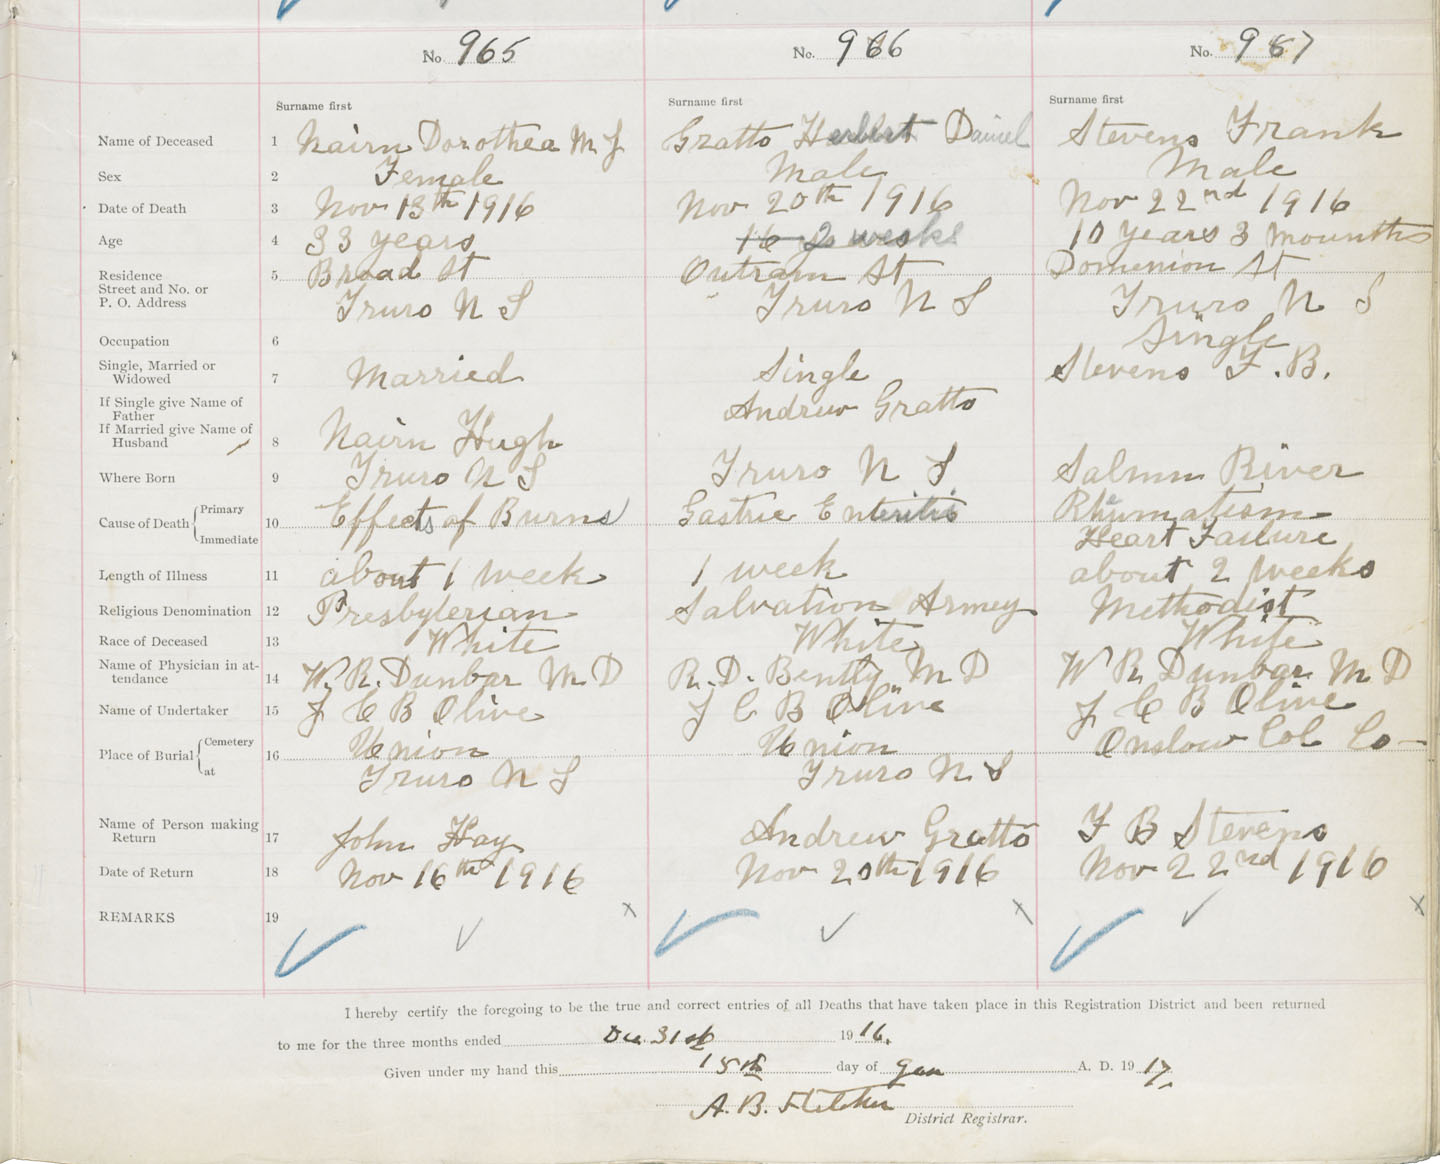 No. 965 No. 966 No. 967
Surname first Surname first Surname first
Name of Deceased 1 Nairn Dorothea M J Gratto Herbert Daniel Stevens Frank
Sex 2 Female Male Male
Date of Death 3 Nov 13th 1916 Nov 20th 1916 Nov 22nd 1916
Age 4 33 years 2 weeks 10 Years 3 Mounths
Residence 5 Broad St Outram St Domenion St
Street and No. or
P. O. Address Truro N S Truro N S Truro N S
Occupation 6 Single
Single, Married or
Widowed 7 Married Single Stevens F. B.
If Single give Name of
Father Andrew Gratto
If Married give Name of
Husband 8 Nairn Hugh
Where Born 9 Truro N S Truro N S Salmun River
Cause of Death Primary 10 Effects of Burns Gastric Enteritis Rhumatism
Immediate Heart Failure
Length of Illness 11 about 1 week 1 week about 2 weeks
Religious Denomination 12 Presbylerian Salvation Armey Methodist
Race of Deceased 13 White White White
Name of Physician in at-
tendance 14 W. R. Dunbar M D R. D. Bently M D W R Dunbar M D
Name of Undertaker 15 J C B Olive J C B Olive J C B Olive
Place of Burial Cemetery 16 Union Union Onslow Col Co
at Truro N S Truro N S
Name of Person making
Return 17 John Hay Andrew Gratto F B Stevens
Date of Return 18 Nov 16th 1916 Nov 20th 1916 Nov 22nd 1916
REMARKS 19
I hereby certify the foregoing to be the true and correct entries of all Deaths that have taken place in this Registration District and been returned
to me for the three months ended Dec. 31st 1916.
Given under my hand this 15th day of Jan A. D. 1917.
A. B. Fletcher
District Registrar.